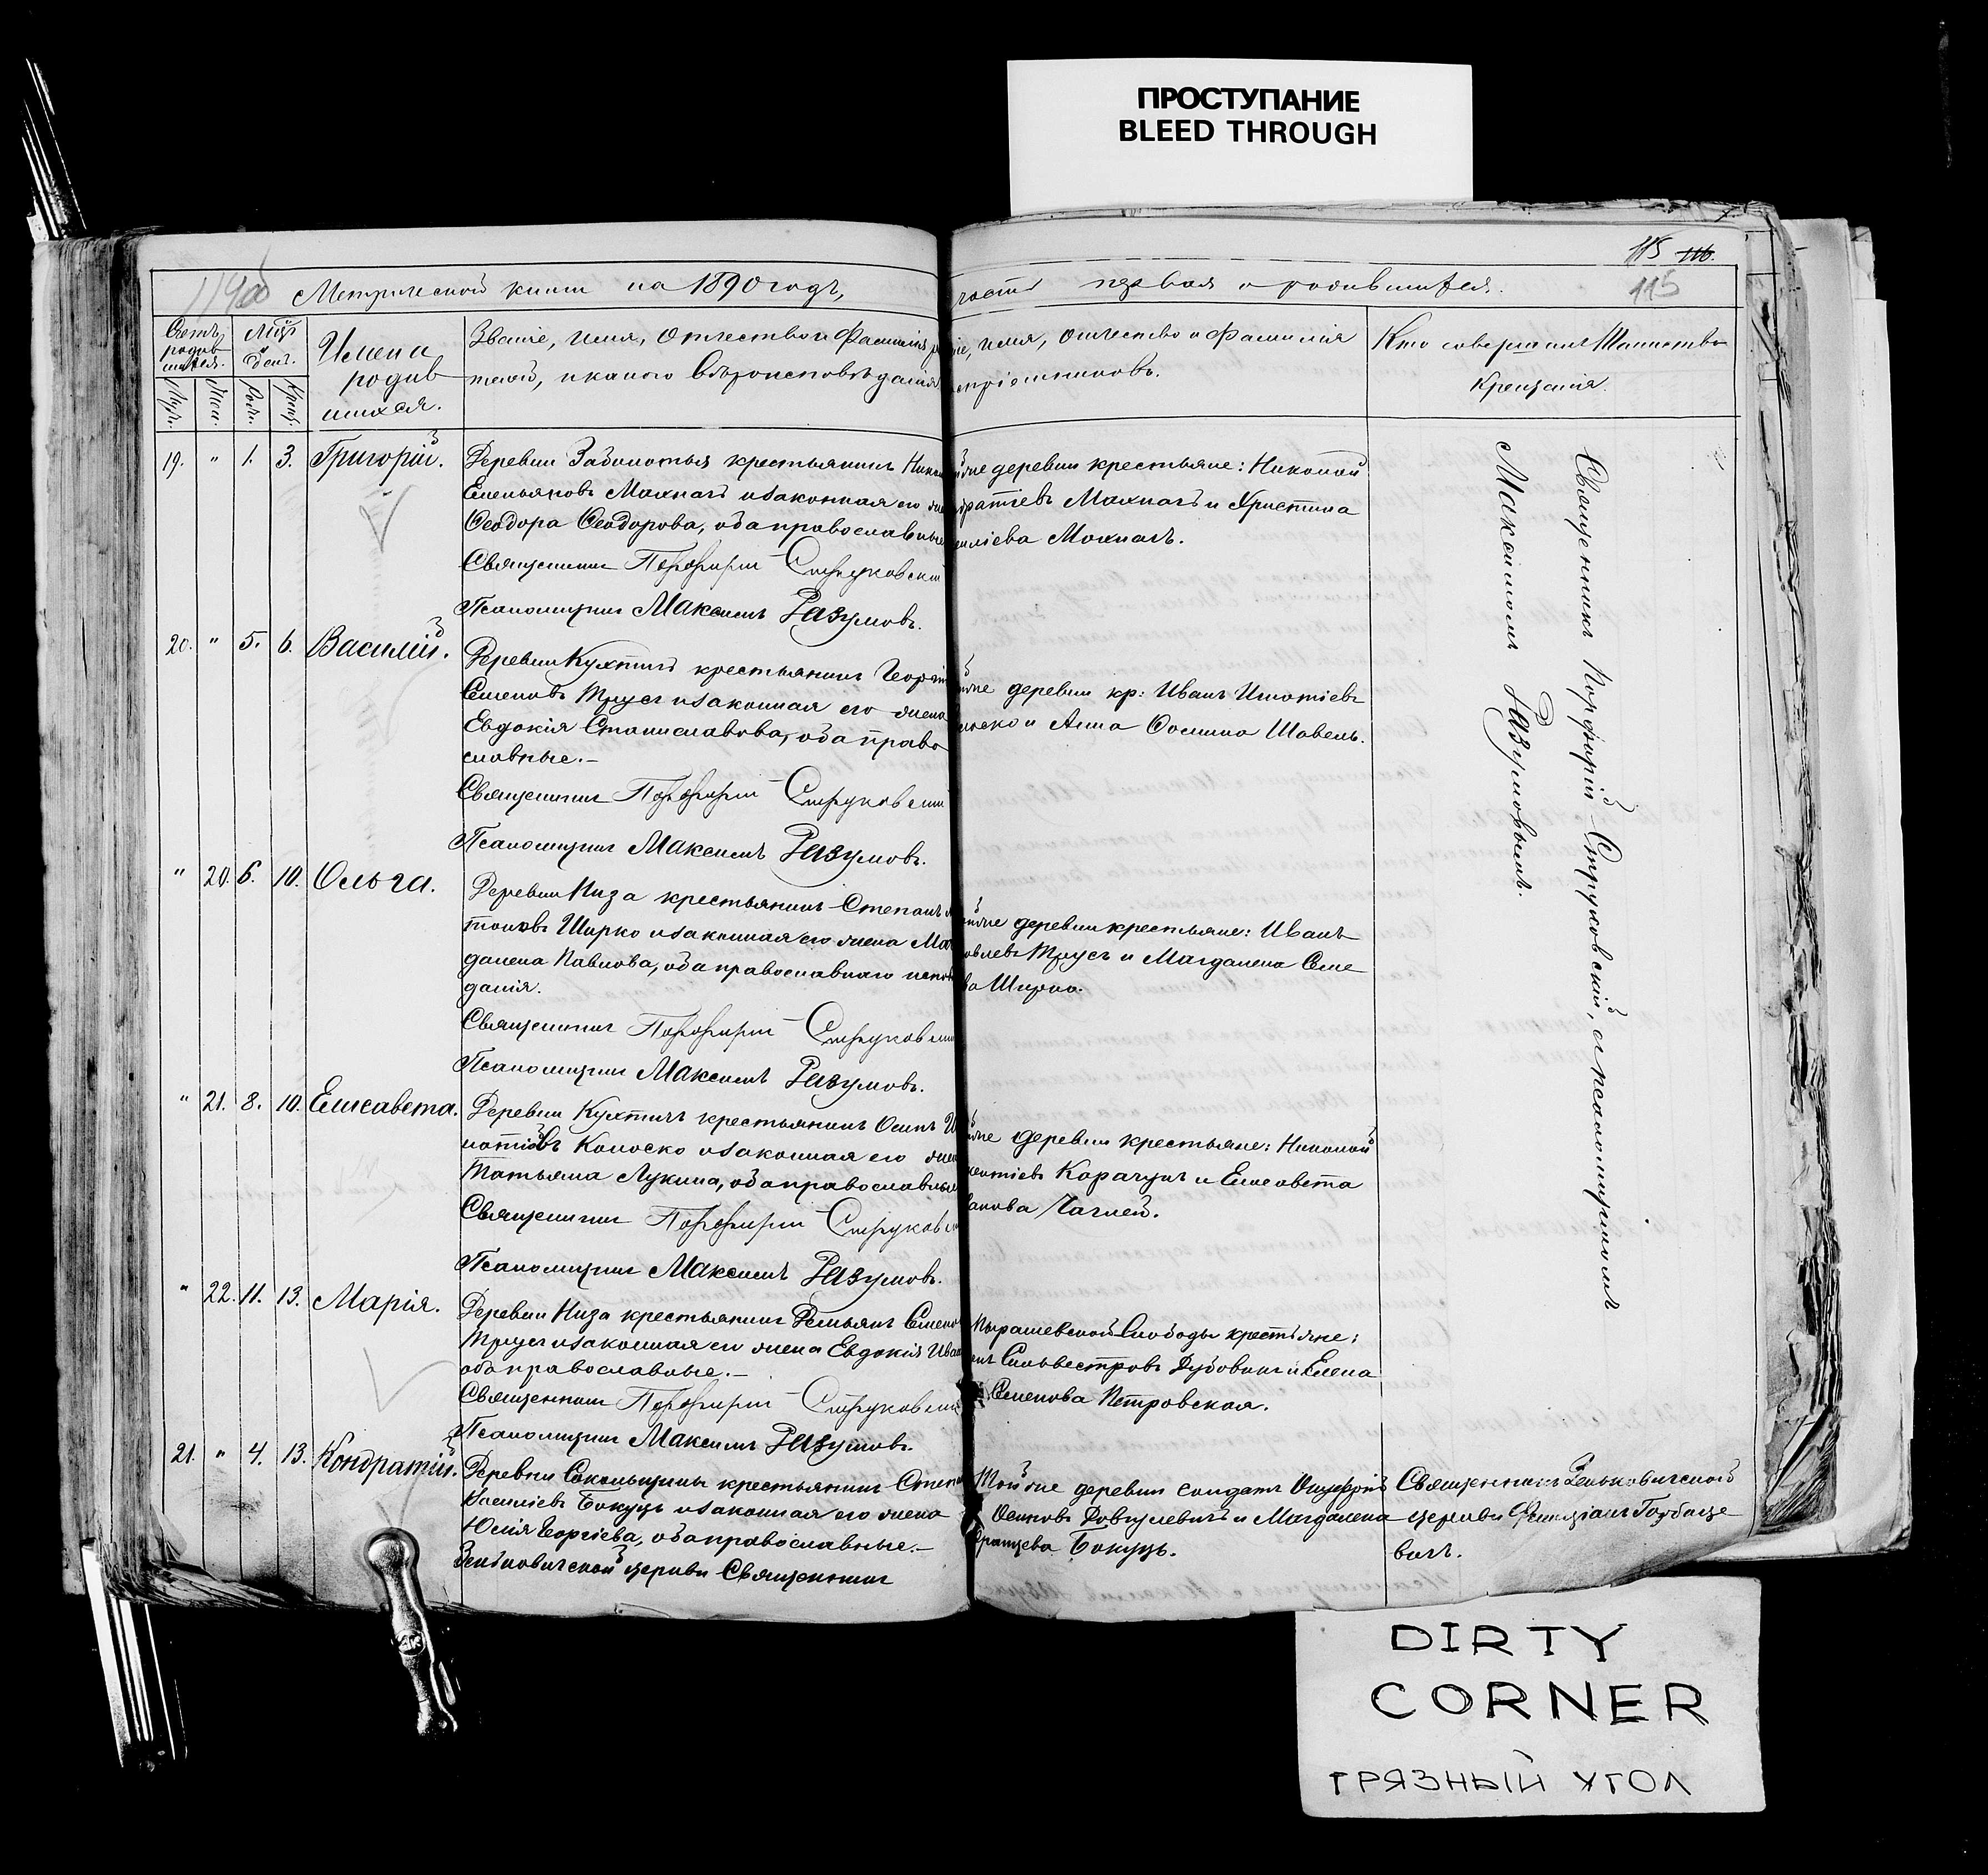 ПРОСТУПАНИЕ
BLEED THROUGH
115 116.
115
Метрической книги на 1890 годъ,
часть первая о родившихся.
Счетъ родив-шихся.
Муж. Жен.
Мѣсяцъ и день.
Рожд. Крещ.
Имена
родив
шихся.
Званіе, имя, отчество и фамилія ро
телей, и какого вѣроисповѣданія
іе, имя, отчество и фамилія
епріемниковъ.
Кто совершалъ Таинство
крещенія.
19. " 1. 3. Григорій.
Деревни Заболотья крестьянинъ Никол
Емельяновъ Махначъ и законная его же
Ѳеодора Ѳеодорова, оба православные
Священникъ Порфирій Струковскій
Псаломщикъ Максимъ Разумовъ.
йже деревни крестьяне: Николай
ратіевъ Махначъ и Христина
иліева Махначъ.
20. " 5. 6. Василій.
Деревни Кухтичъ крестьянинъ Георгій
Семеновъ Трусъ и законная его жена
Евдокія Станиславова, оба право
славные.-
Священникъ Порфирій Струковскій
Псаломщикъ Максимъ Разумовъ.
йже деревни кр: Иванъ Игнатіевъ
и Анна Осипова Шавель.
" 20. 6. 10. Ольга.
Деревни Низа крестьянинъ Степанъ Ан
тоновъ Ширко и законная его жена Маг
далена Павлова, оба православнаго испов
данія.
Священникъ Порфирій Струковскій
Псаломщикъ Максимъ Разумовъ.
йже деревни крестьяне: Иванъ
овлевъ Трусъ и Магдалена Семе
ва Ширко.
" 21. 8. 10. Елисавета.
Деревни Кухтичъ крестьянинъ Осипъ Иг
натіевъ Колоско и законная его жен
Татьяна Лукина, оба православные
Священникъ Порфирій Струковс
Псаломщикъ Максимъ Разумовъ.
йже деревни крестьяне: Николай
ентіевъ Карачунъ и Елисавета
анова Чаглей.
" 22. 11. 13. Марія.
Деревни Низа крестьянинъ Демьянъ Семено
Трусъ и законная его жена Евдокія Иван
оба православные.-
Священникъ Порфирій Струковскій
Псаломщикъ Максимъ Разумовъ.
Пырашевской Слободы крестьяне:
Сильвестровъ Дубовикъ и Елена
Семенова Петровская.
21. " 4. 13. Кондратій.
Деревни Сокольщины крестьянинъ Степ
Василіевъ Бокуць и законная его жена
Юлія Георгіева, оба православные.-
церкви Священникъ
Тойже деревни солдатъ Онуфрій
Осиповъ и Магдалена
Бокуць.
Священникъ
церкви Горбаце
вичъ.
Священникъ Порфирій Струковскій, съ псаломщикомъ
Максимомъ Разумовымъ.
DIRTY
CORNER
ГРЯЗНЫЙ УГОЛ